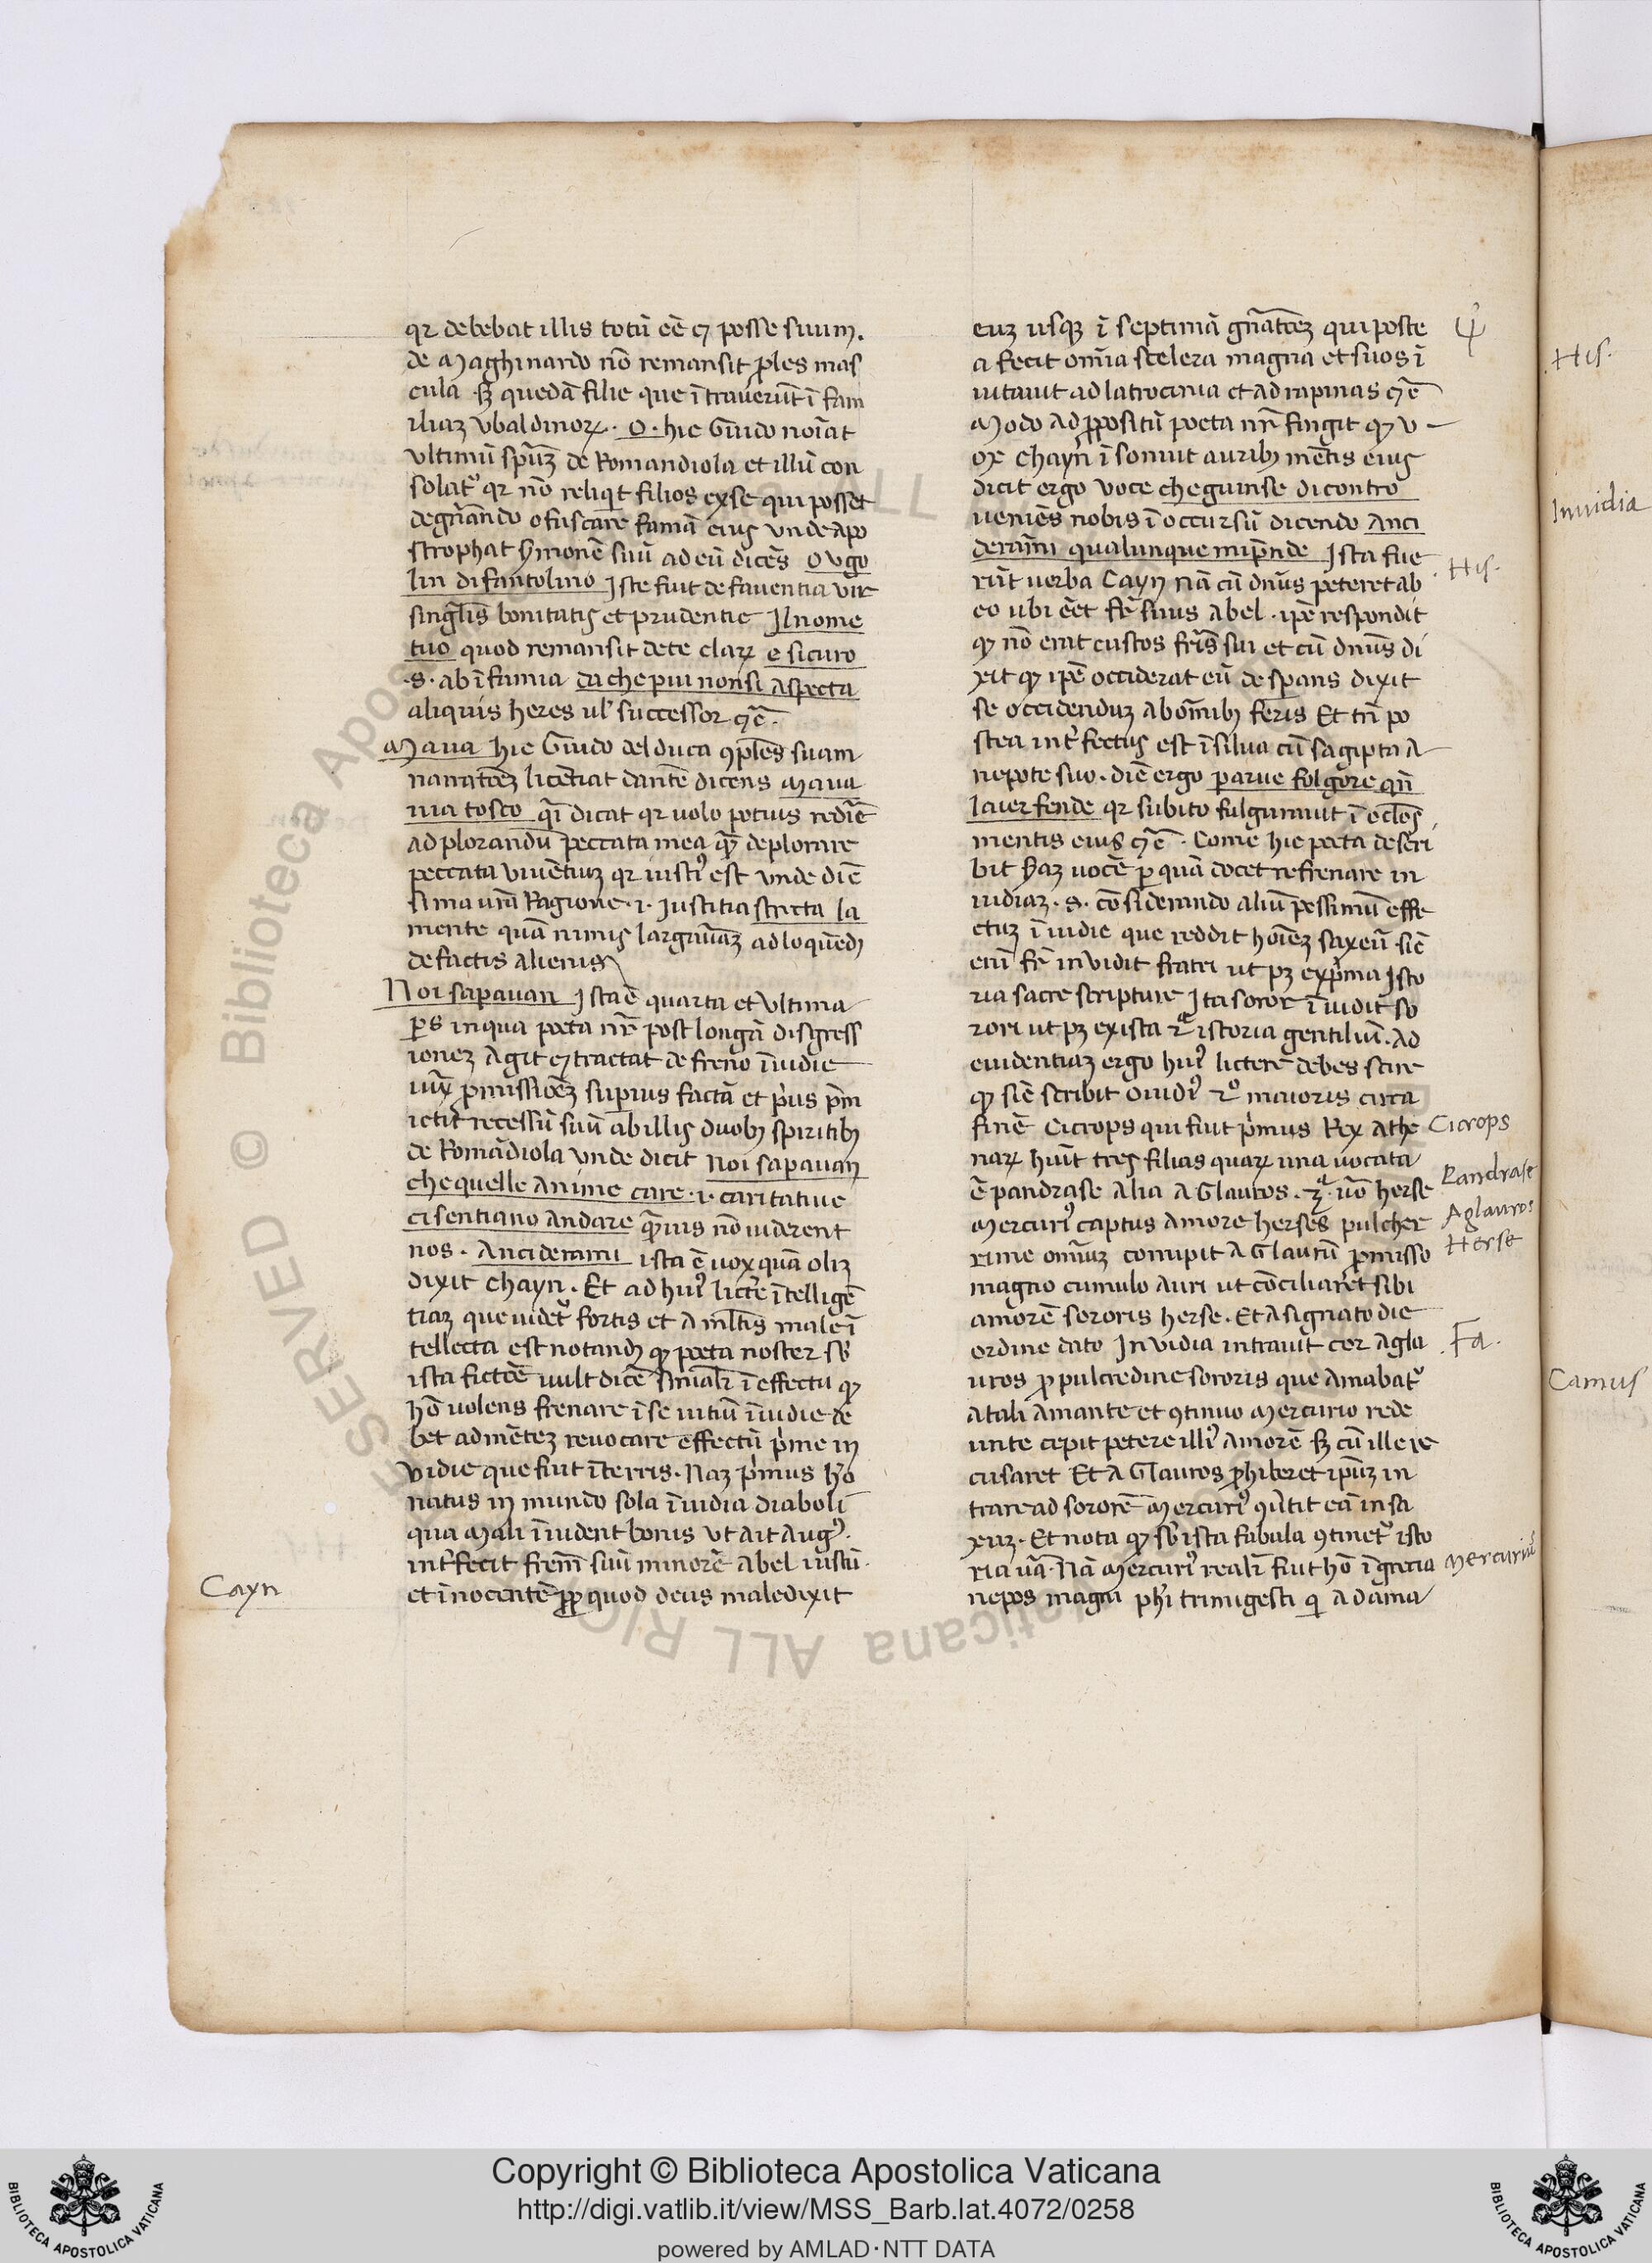 qr debebat illis totũ eẽ ꝯ posse suum.
de Maghinardo nõ remansit ꝓles mas
cula sꝫ quedã filie que ĩtrauerũt ĩ fam
iliaꝫ Vbaldinoꝝ. O. hic Guido noĩat
vltimũ spũꝫ de Romandiola et illũ con
solatᷣ qr nõ reliqͥt filios ex se qui posset
degñando ofuscare famã eius vnde apo
strophat Ymonẽ suũ ad eũ dicẽs O vgo
lin di fantolino Iste fuit de fauentia vir
singľis bonitatis et prudentie Il nome
tuo quod remansit de te claꝝ e sicuro
.s. ab ĩfamia da che piu non si aspecta
aliquis heres uľ successor ꝯẽ.
Maua hic Guido del duca ꝯplens suam
narratõeꝫ licẽtiat dantẽ dicens maua
uia tosco qͣi dicat qr uolo potius redire
ad plorandũ peccata mea qͣꝫ deplorare
peccata viuẽtiuꝫ qr iustiꝰ est vnde dic̃
Si ma vr̃a Ragione .i. Iustitia strecta la
mente quã nimis largauaꝫ ad loquẽdꝫ
de factis alienis
Noi sapauan Ista ẽ quarta et vltima
ꝑs in qua poeta nr̃ post longã disgress
ioneꝫ agit ꝯ tractat de freno ĩuidie
iux̃ ꝓmissiõeꝫ superius factã et pͥus p̃m
ictit recessũ suũ ab illis duobꝫ spiritibꝫ
de Romãdiola vnde dicit Noi sapauan
che quelle anime care .i. caritatiue
ci sentiano andare qͣuis nõ uiderent
nos. Anciderami ista ẽ uox quã oliꝫ
dixit Chayn. Et ad huiꝰ lictr̃e ĩtelligẽ
tiaꝫ que uidetᷣ fortis et a ml̃tis male ĩ
tellecta est notandꝫ qꝫ poeta noster sb̾
ista fictõe uult dic̃e finaľr ĩ effectu qꝫ
hõ uolens frenare ĩ se uitiũ ĩuidie de
bet ad mẽteꝫ reuocare effectũ pͥme in
vidie que fuit ĩ terris. Naꝫ pͥmus hõ
natus in mundo sola ĩuidia diaboli
qua mali ĩuident bonis vt ait augꝰ.
intͬfecit frẽm suũ minorẽ abel iustũ.
et ĩnocentẽ ꝓp quod deus maledixit
Cayn
euꝫ usqꝫ ĩ septimã gñatõeꝫ qui poste
a fecit omĩa scelera magna et suos ĩ
uitauit ad latrocinia et ad rapinas ꝯẽ
Modo ad ꝓpositũ poeta nr̃ fingit qꝫ v
ox chayñ ĩsonuit auribꝫ mẽtis eius
dicit ergo voce che guinse di contro
ueniẽs nobis ĩ occursũ dicendo Anci
derami qualunque mip̃nde Ista fue
rũt uerba Cayn nã cũ dñus peteret ab
eo ubi eẽt fr̃ suus abel. ipẽ respondit
qꝫ nõ erat custos fr̃is sui et cũ dñus di
xit qꝫ ipẽ occiderat eũ desperans dixit
se occidenduꝫ ab oĩnibꝫ feris Et tñ po
stea intͬfectus est ĩ silua cũ sagipta a
nepote suo. dic̃ ergo parue folgore qñ
laier fende qr subito fulgurauit ĩ oclõs
mentis eius ꝯẽ. Come hic poeta descri
bit haꝫ uocẽ ꝑ quã docet refrenare in
uidiaꝫ .s. cõsiderando aliũ pessimũ effe
ctuꝫ ĩuidie que reddit hoĩeꝫ saxeũ sic̃
eni fr̃ inuidit fratri ut pꝫ ex pͥma Isto
ria sacre scripture Ita soror ĩuidit so
rori ut pꝫ ex ista 2ᵃ istoria gentiliũ. Ad
euidentiaꝫ ergo huiꝰ lictere debes scire
qꝫ sic̃ scribit Ouidiꝰ 2º maioris circa
finẽ Cicrops qui fuit pͥmus Rex athe
naꝝ huit tres filias quaꝝ una uocata
ẽ pandrase alia Aglauros. 3ᵃ uõ herse
Mercuriꝰ captus amore herses pulcher
rime omĩuꝫ corrupit Aglaurũ ꝓmisso
magno cumulo auri ut cõciliaret sibi
amorẽ sororis herse. Et asignato die
ordine dato Inuidia intrauit cor aglu
uros ꝓ pulcredine sororis que amabatᷣ
a tali amante et ꝯtinuo Mercurio rede
unte cepit petere illiꝰ amorẽ sꝫ cũ ille re
cusaret Et Aglauros ꝓhiberet ipũꝫ in
trare ad sororẽ Mercuriꝰ ꝯùtit eã in sa
xuꝫ. Et nota qꝫ sb̾ ista fabula ꝯtinetᷣ isto
ria uã. Nã Mercuriꝰ realĩ fuit hõ ĩ grecia
nepos magni phỉ trimigesti qi adama
His.
Cicrops
Pandrase
Aglauros
Herse
Fa.
Mercuriꝰ
His.
Inuidia
Camus
Copyright © Biblioteca Apostolica Vaticana
http://digi.vatlib.it/view/MSS_Barb.lat.4072/0258
powered by AMLAD·NTT DATA
BIBLIOTECA APOSTOLICA VATICANA
BIBLIOTECA APOSTOLICA VATICANA